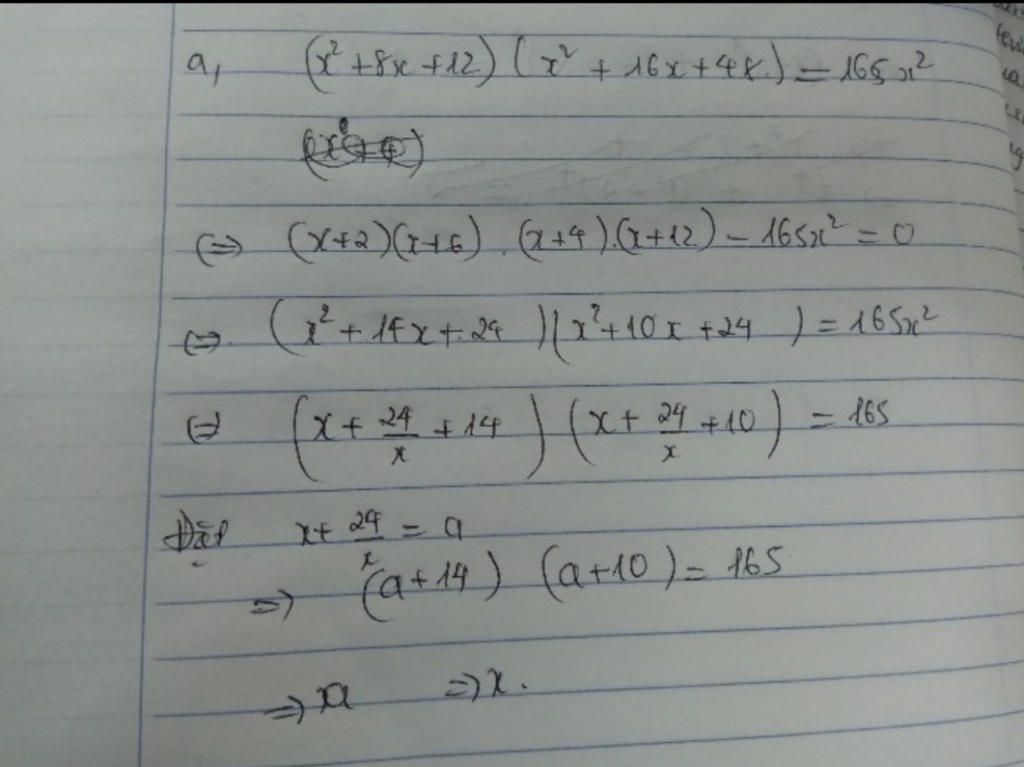 a, (x² + 8x + 12) (x² + 16x + 48) = 165x²
⇔ (x+2)(x+6) . (x+4).(x+12) - 165x² = 0
⇔ (x² + 14x + 24)(x² + 10x + 24) = 165x²
⇔ (x + 24/x + 14) (x + 24/x + 10) = 165
Đặt x + 24/x = a
⇒ (a + 14) (a + 10) = 165
⇒ a ⇒ x.